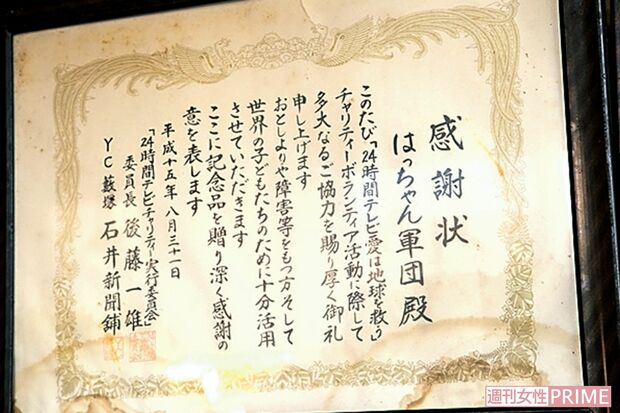 感謝状
はっちゃん軍団殿
このたび「24時間テレビ愛は地球を救う」
チャリティーボランティア活動に際して
多大なるご協力を賜り厚く御礼
申し上げます
おとしよりや障害等をもつ方そして
世界の子どもたちのために十分活用
させていただきます
ここに記念品を贈り深く感謝の
意を表します
平成十五年八月三十一日
「24時間テレビチャリティー実行委員会」
委員長 後藤一雄
YC藪塚 石井新聞鋪
週刊女性PRIME